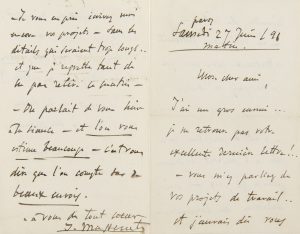 Paris
Samedi 27 Juin / 96
matin.
Mon cher ami,
J'ai un gros ennui...
je ne retrouve pas votre
excellente dernière lettre!..
– vous m'y parliez de
vos projets de travail..
et j'aurais dû vous
– Je vous en prie écrivez moi
encore vos projets – sans les
détails qui seraient trop longs..
et que je regrette tant de
ne pas relire ce matin –
– On parlait de vous hier
– et l'on vous
estime beaucoup – c'est vous
dire que l'on compte sur de
beaux envois.
à vous de tout coeur
J. Massenet